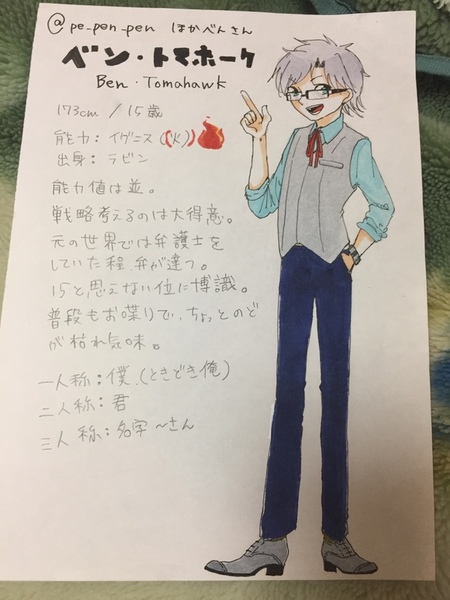 @pe_pen_pen ほかべんさん
ベン・トマホーク
Ben・Tomahawk
173cm / 15歳
能力: イグニス(火)
出身: ラビン
能力値は並。
戦略考えるのは大得意。
元の世界では弁護士を
していた程、弁が達つ。
15と思えない位に博識。
普段もお喋りで、ちょっとのど
が枯れ気味。
一人称:僕、(ときどき俺)
二人称:君
三人称:名字〜さん